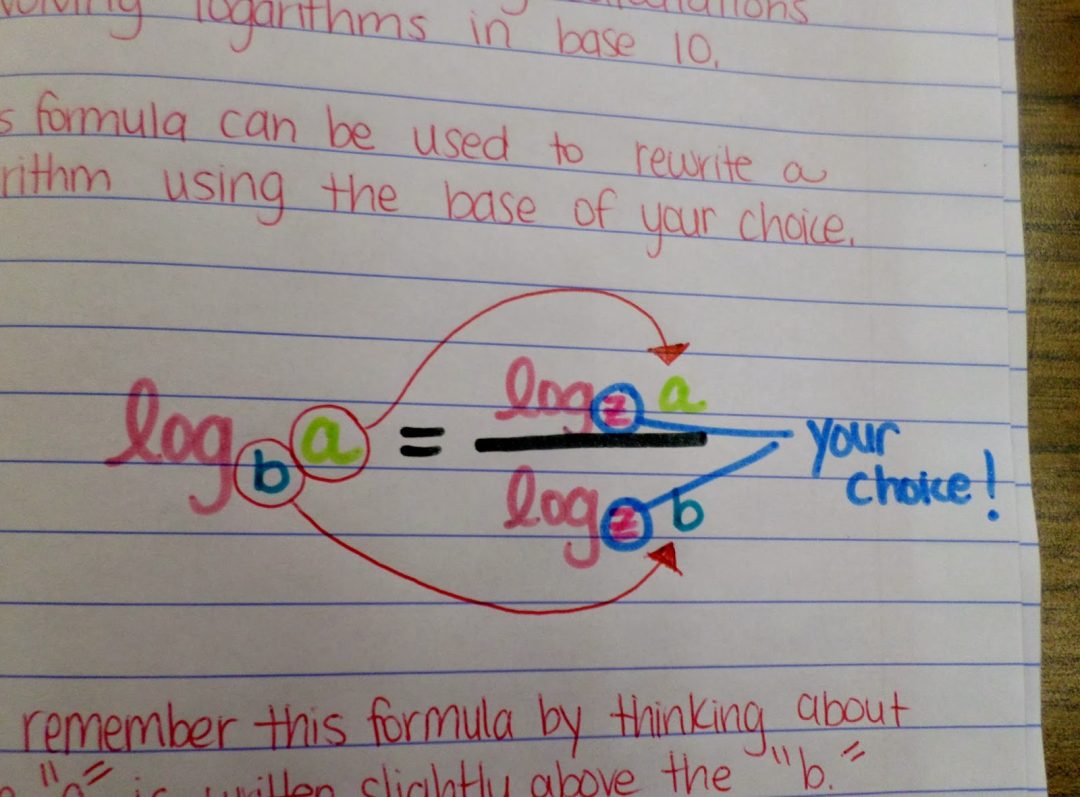 logarithms in base 10.
formula can be used to rewrite a
rithm using the base of your choice.
log_b a = log_z a / log_z b
your
choice!
remember this formula by thinking about
"a" is written slightly above the "b."